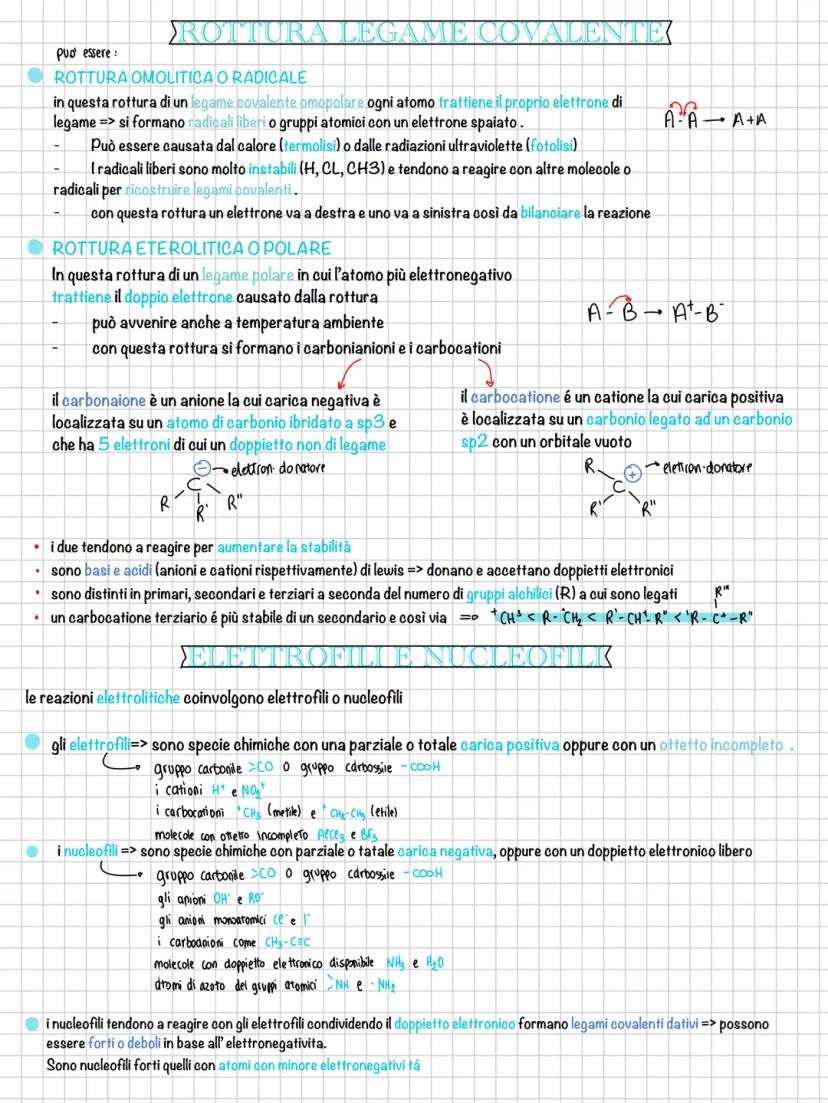 ROTTURA LEGAME COVALENTE
può essere :
ROTTURA OMOLITICA O RADICALE
in questa rottura di un legame covalente omopolare ogni atomo trattiene il proprio elettrone di
legame => si formano radicali liberi o gruppi atomici con un elettrone spaiato .
A-A → A+A
- Può essere causata dal calore (termolisi) o dalle radiazioni ultraviolette (fotolisi)
- I radicali liberi sono molto instabili (H, CL, CH3) e tendono a reagire con altre molecole o
radicali per ricostruire legami covalenti .
- con questa rottura un elettrone va a destra e uno va a sinistra così da bilanciare la reazione
ROTTURA ETEROLITICA O POLARE
In questa rottura di un legame polare in cui l'atomo più elettronegativo
trattiene il doppio elettrone causato dalla rottura
A - B → A⁺-B⁻
- può avvenire anche a temperatura ambiente
- con questa rottura si formano i carbonianioni e i carbocationi
il carbonaione è un anione la cui carica negativa è
localizzata su un atomo di carbonio ibridato a sp3 e
che ha 5 elettroni di cui un doppietto non di legame
− → elettron-donatore
C
R R' R"
il carbocatione é un catione la cui carica positiva
è localizzata su un carbonio legato ad un carbonio
sp2 con un orbitale vuoto
R + → elettron-donatore
C
R' R"
• i due tendono a reagire per aumentare la stabilità
• sono basi e acidi (anioni e cationi rispettivamente) di lewis => donano e accettano doppietti elettronici
• sono distinti in primari, secondari e terziari a seconda del numero di gruppi alchilici (R) a cui sono legati
R"'
• un carbocatione terziario é più stabile di un secondario e così via => ⁺CH³ < R-⁺CH₂ < R'-CH⁺-R" < 'R-C⁺-R"
ELETTROFILI E NUCLEOFILI
le reazioni elettrolitiche coinvolgono elettrofili o nucleofili
gli elettrofili=> sono specie chimiche con una parziale o totale carica positiva oppure con un ottetto incompleto .
gruppo carbonile >CO o gruppo carbossile -COOH
i cationi H⁺ e NO₂⁺
i carbocationi ⁺CH₃ (metile) e ⁺CH₂-CH₃ (etile)
molecole con ottetto incompleto AlCl₃ e BF₃
i nucleofili => sono specie chimiche con parziale o tatale carica negativa, oppure con un doppietto elettronico libero
gruppo carbonile >CO o gruppo carbossile -COOH
gli anioni OH⁻ e RO⁻
gli anioni monoatomici Cl⁻ e I⁻
i carboanioni come CH₃-C≡C
molecole con doppietto elettronico disponibile NH₃ e H₂O
atomi di azoto dei gruppi atomici >NH e -NH₂
i nucleofili tendono a reagire con gli elettrofili condividendo il doppietto elettronico formano legami covalenti dativi => possono
essere forti o deboli in base all' elettronegativita.
Sono nucleofili forti quelli con atomi con minore elettronegativi tá